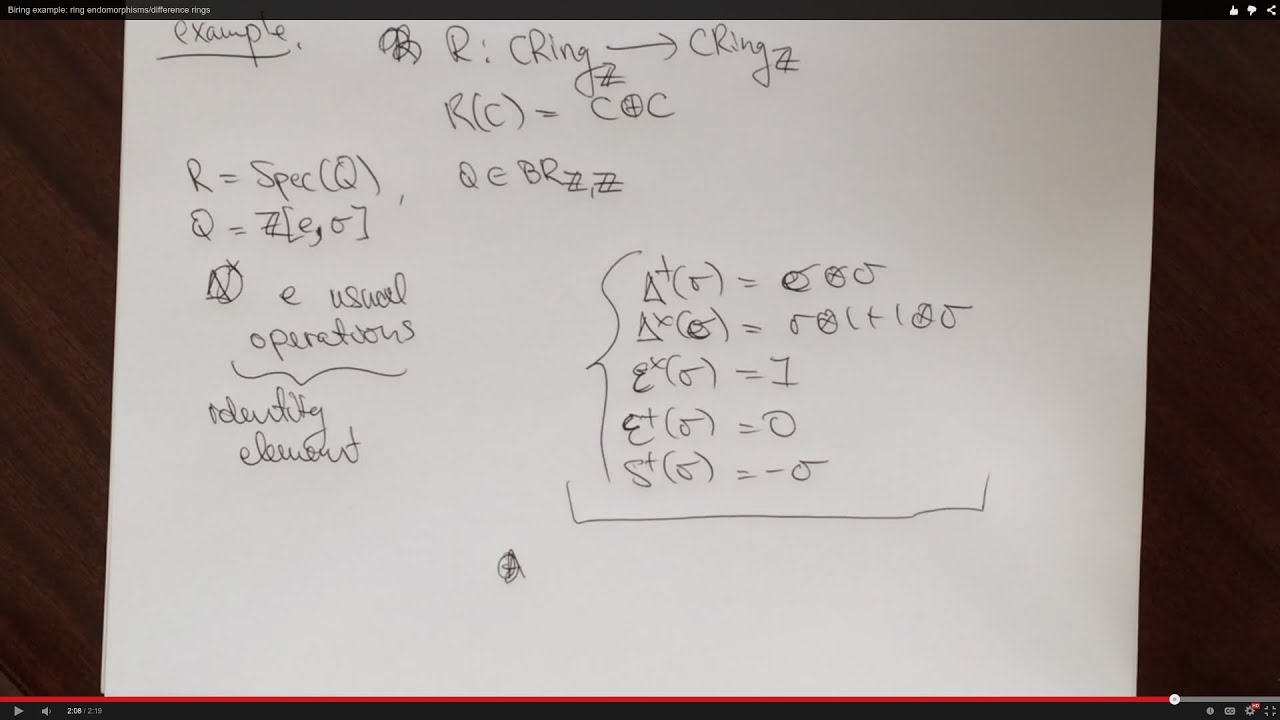 Biring example: ring endomorphisms/difference rings
example.
R: CRing_ℤ → CRing_ℤ
R(C) = C⊕C
R = Spec(Q), Q ∈ BR_ℤ,ℤ
Q = ℤ[e,σ]
e usual
operations
identity
element
Δ⁺(σ) = σ⊗σ
Δˣ(σ) = σ⊗1+1⊗σ
εˣ(σ) = 1
ε⁺(σ) = 0
S⁺(σ) = -σ
2:08 / 2:19
HD